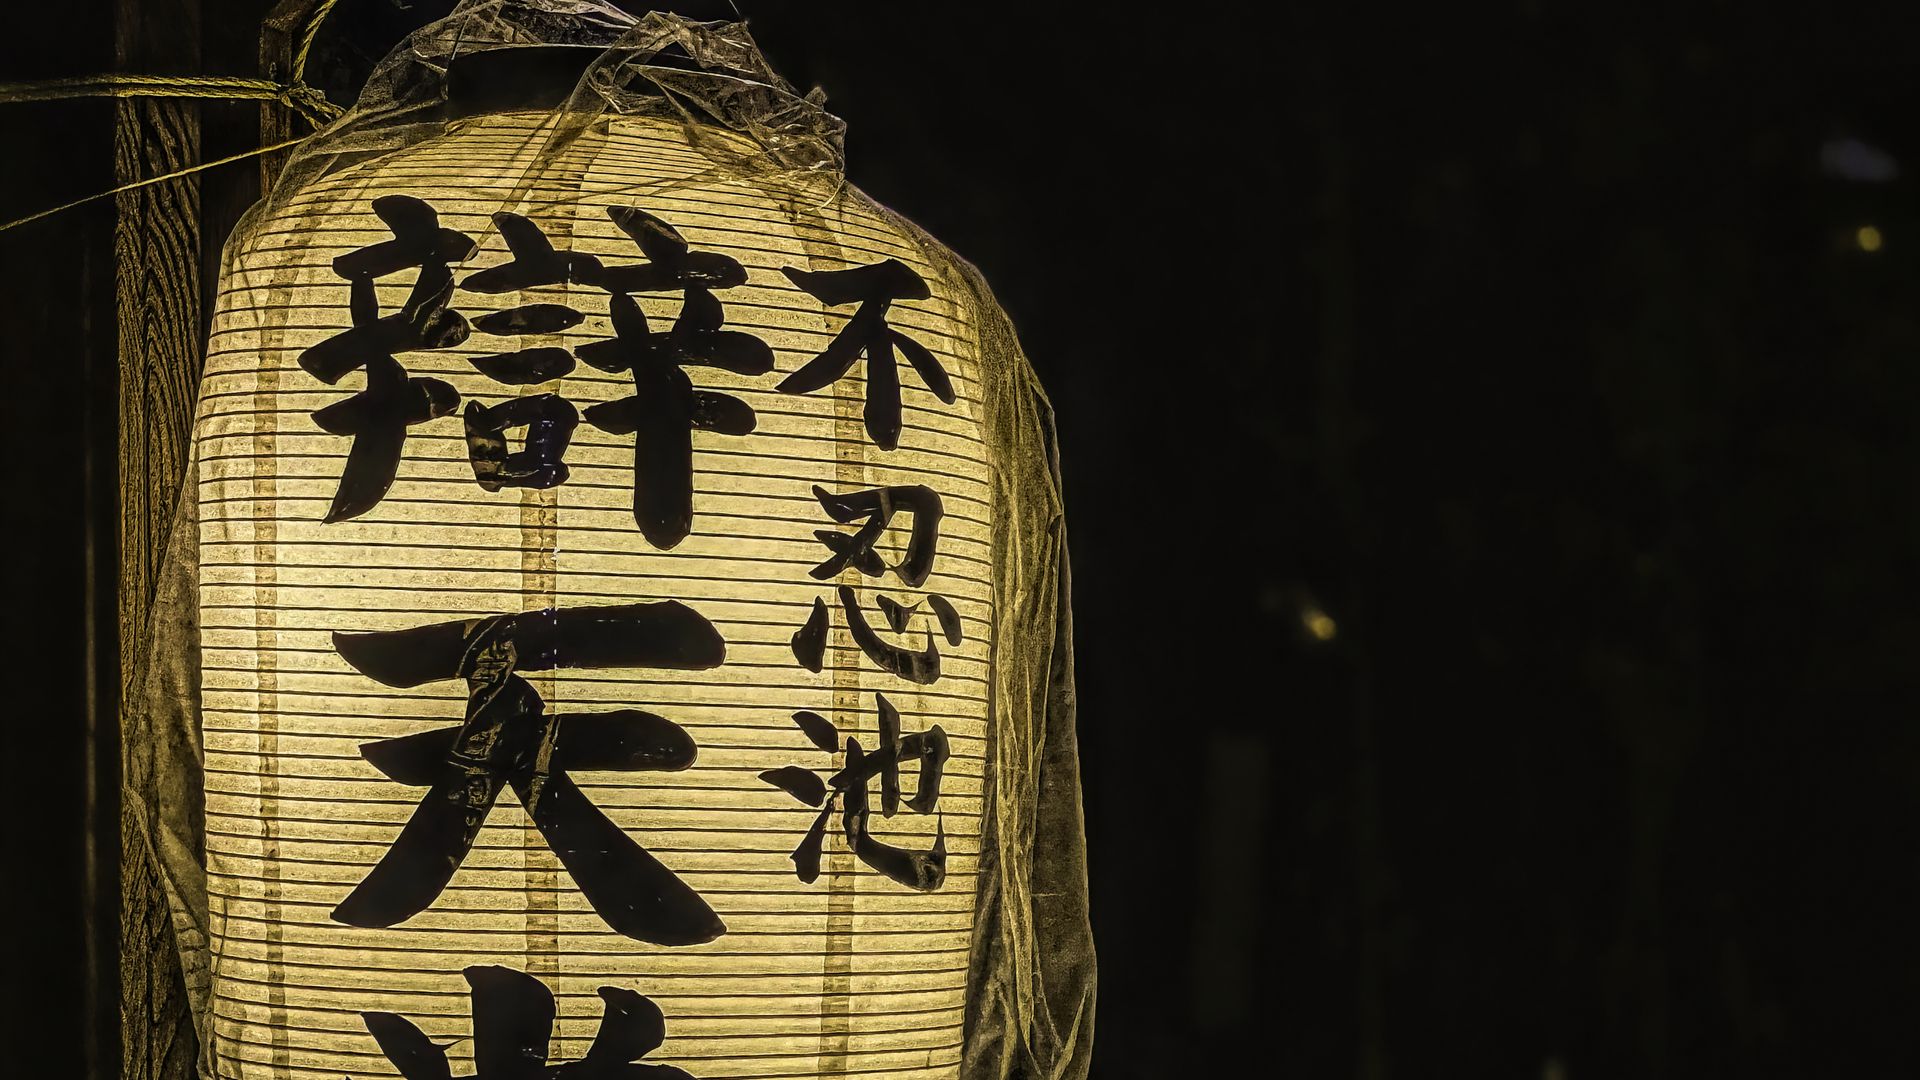 不忍池
辯天